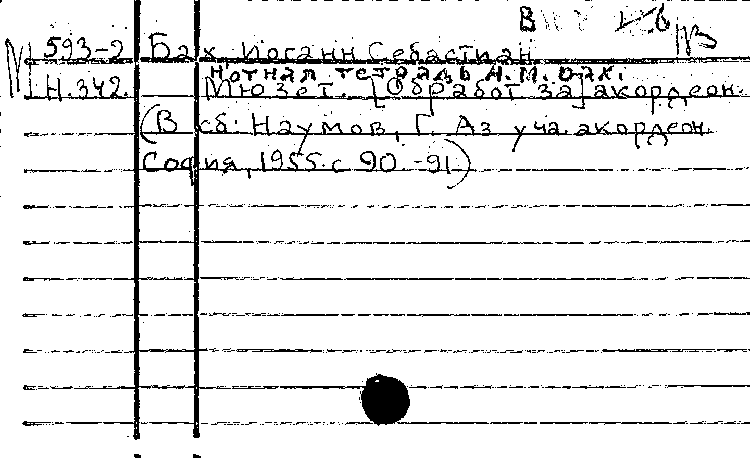 В
М 593-2 Бах, Иоганн Себастиан
Нотная тетрадь А.М. Бах.
Н.342. Мюзет. [Обработ за] акордеон.
(В сб: Наумов, Г. Аз уча акордеон.
София, 1955. с 90.-91)